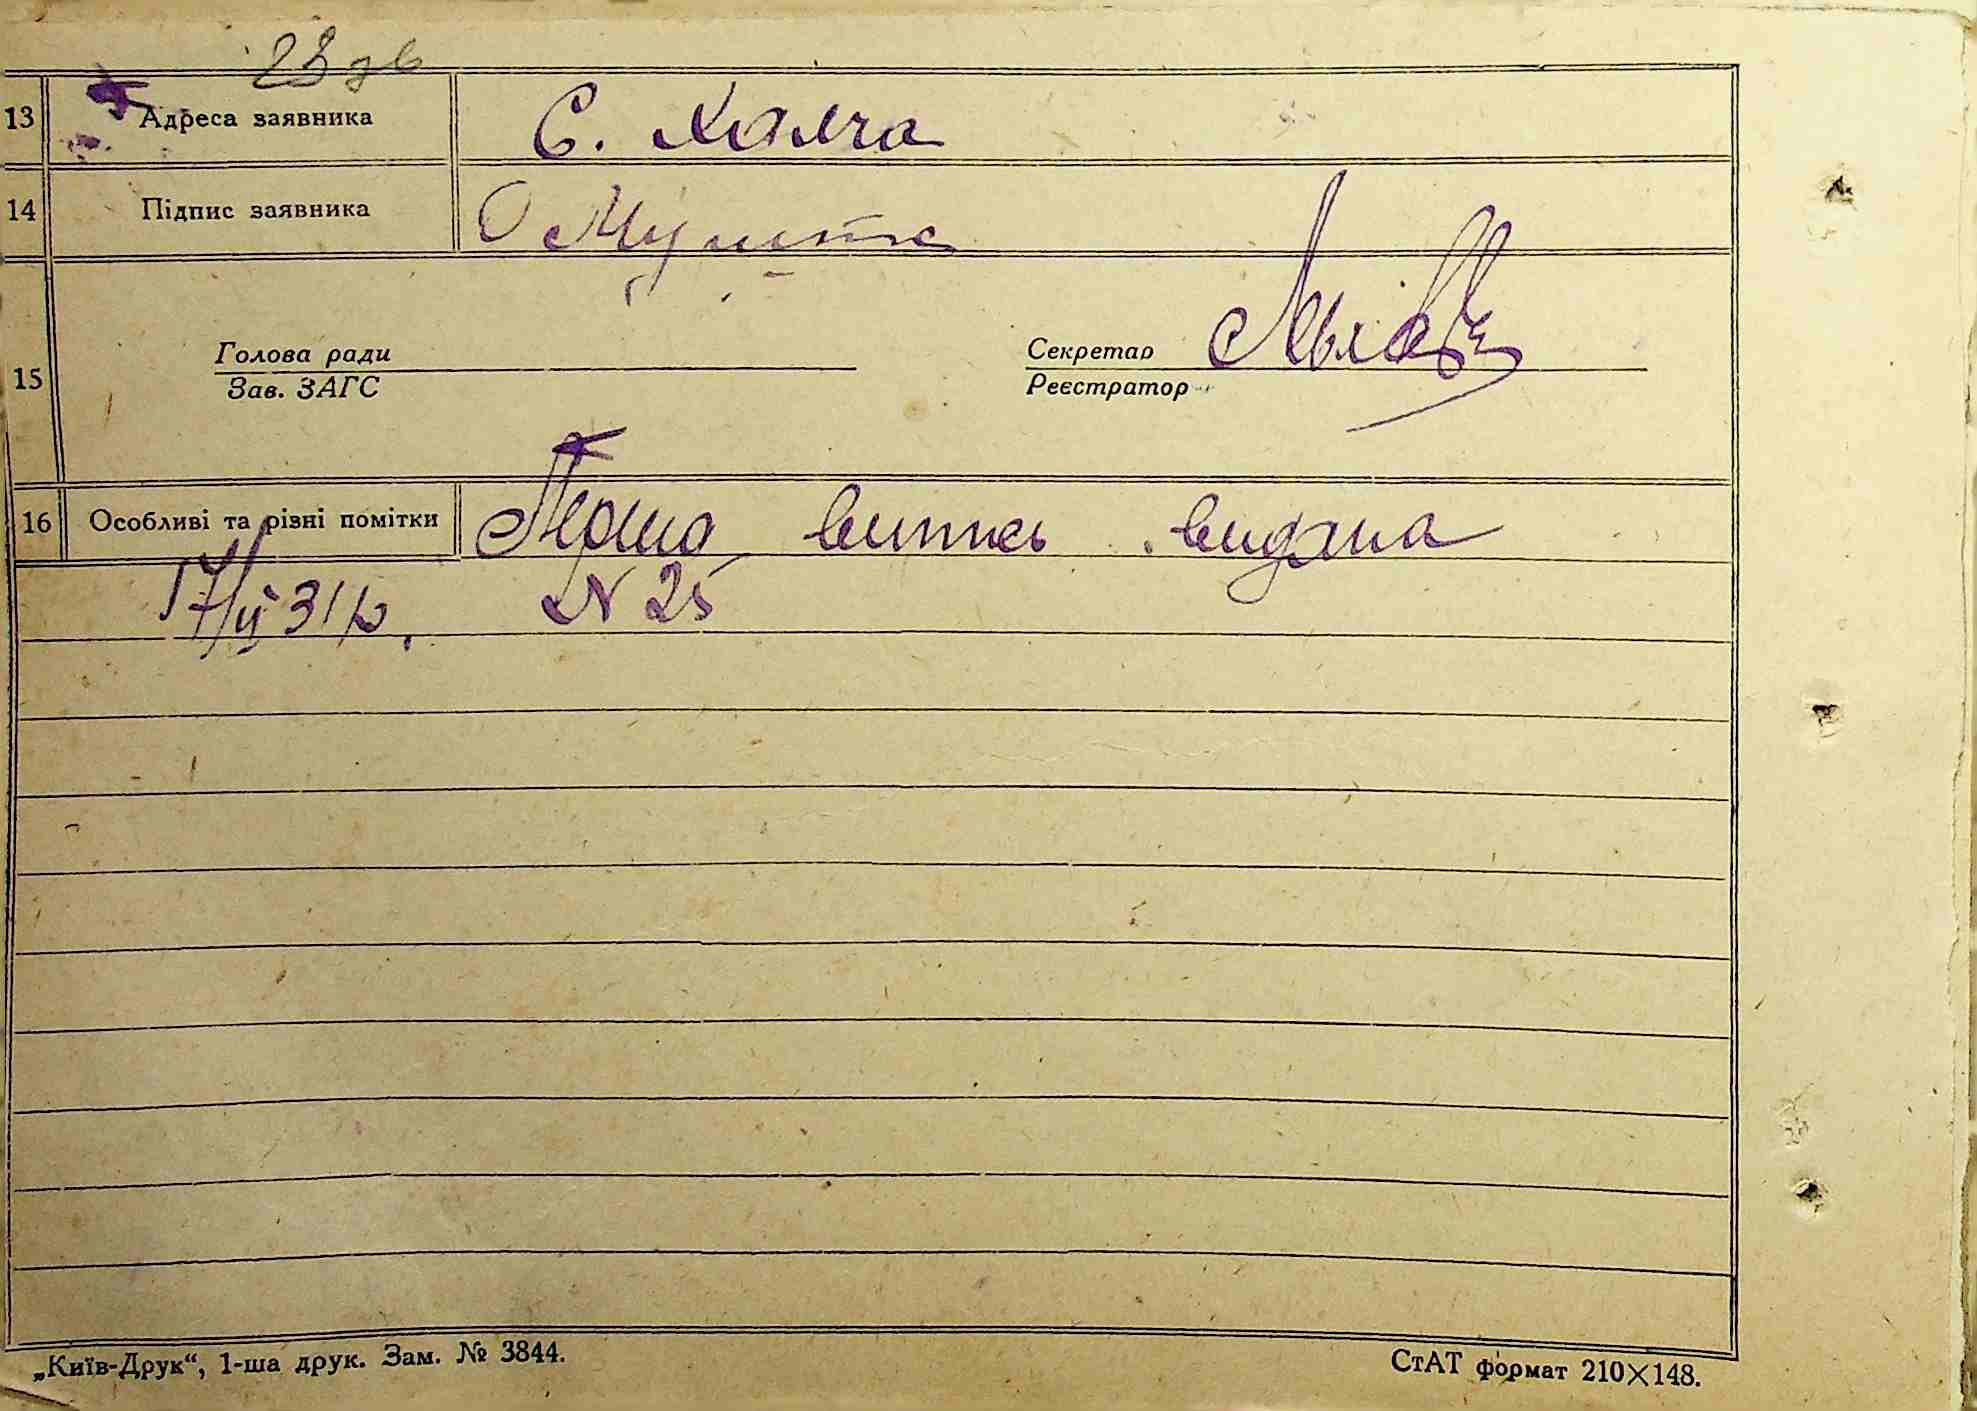 23 зв
13 Адреса заявника С. Халча
14 Підпис заявника
15 Голова ради Секретар
Зав. ЗАГС Реєстратор
16 Особливі та різні помітки Перша випись видана
17/II 31 р. N 25
„Київ-Друк“, 1-ша друк. Зам. № 3844. СтАТ формат 210×148.